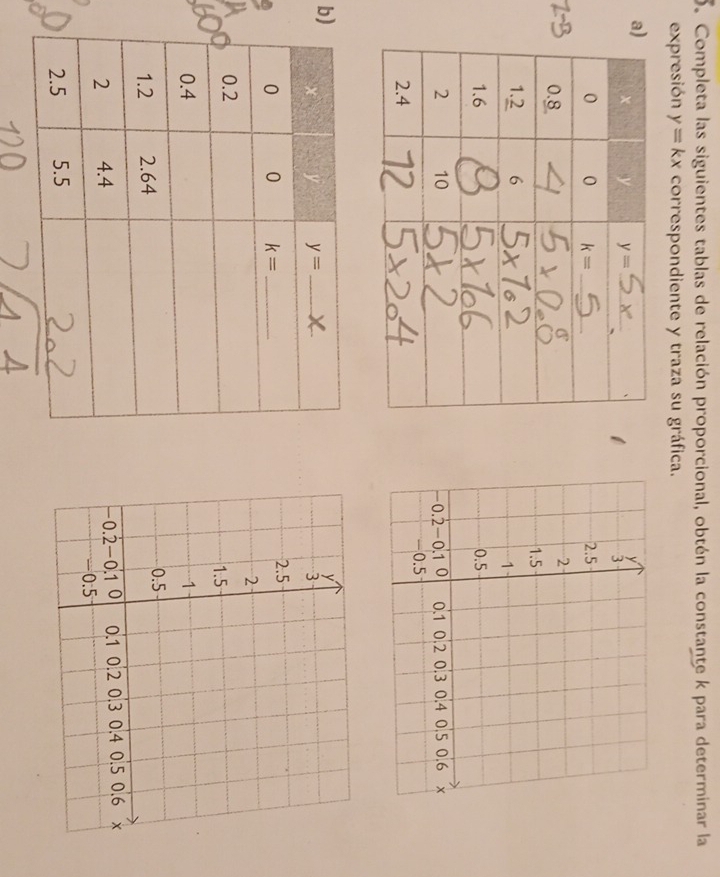 5. Completa las siguientes tablas de relación proporcional, obtén la constante k para determinar la
expresión y = kx correspondiente y traza su gráfica.
a)
x y y = 5x
0 0 k = 5
0.8 4 5x0.8
1.2 6 5x1.2
1.6 8 5x1.6
2 10 5x2
2.4 12 5x2.4
y
3
2.5
2
1.5
1
0.5
-0.2 -0.1 0 0.1 0.2 0.3 0.4 0.5 0.6 x
-0.5
b)
x y y = ___ x
0 0 k = ___
0.2
0.4
1.2 2.64
2 4.4
2.5 5.5
2.2
y
3
2.5
2
1.5
1
0.5
-0.2 -0.1 0 0.1 0.2 0.3 0.4 0.5 0.6 x
-0.5